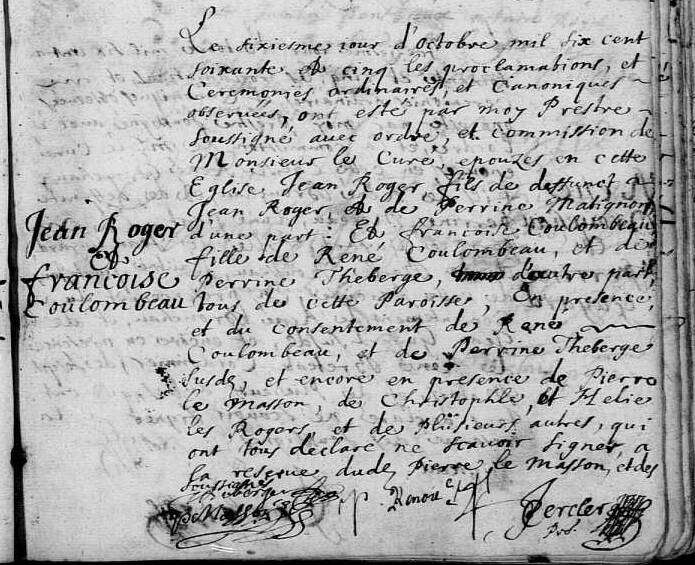 Le sixiesme jour d'octobre mil six cent
soixante et cinq les proclamations, et
Ceremonies ordinaires, et Canoniques
observeës, ont esté par moy Prestre
soustigné avec ordre, et commission de
Monsieur le Curé, epouzés en cette
Eglise Jean Roger fils de deffunct
Jean Roger, et de Perrine Matignon
d'une part: Et francoise Coulombeau
fille de René Coulombeau, et de
Perrine Theberge, d'autre part,
tous de cette Paroisse; En presence,
et du consentement de René
Coulombeau, et de Perrine Theberge
susdz, et encore en presence de Pierre
le Masson, de Christophle, et Helie
les Rogers et de Plusieurs autres, qui
ont tous declaré ne scavoir signer, a
la reserve dudz Pierre le Masson, et des
soustignés
Jean Roger
et
francoise
Coulombeau
Theberge
Renoul
P le Masson
Jercler
Pbr.